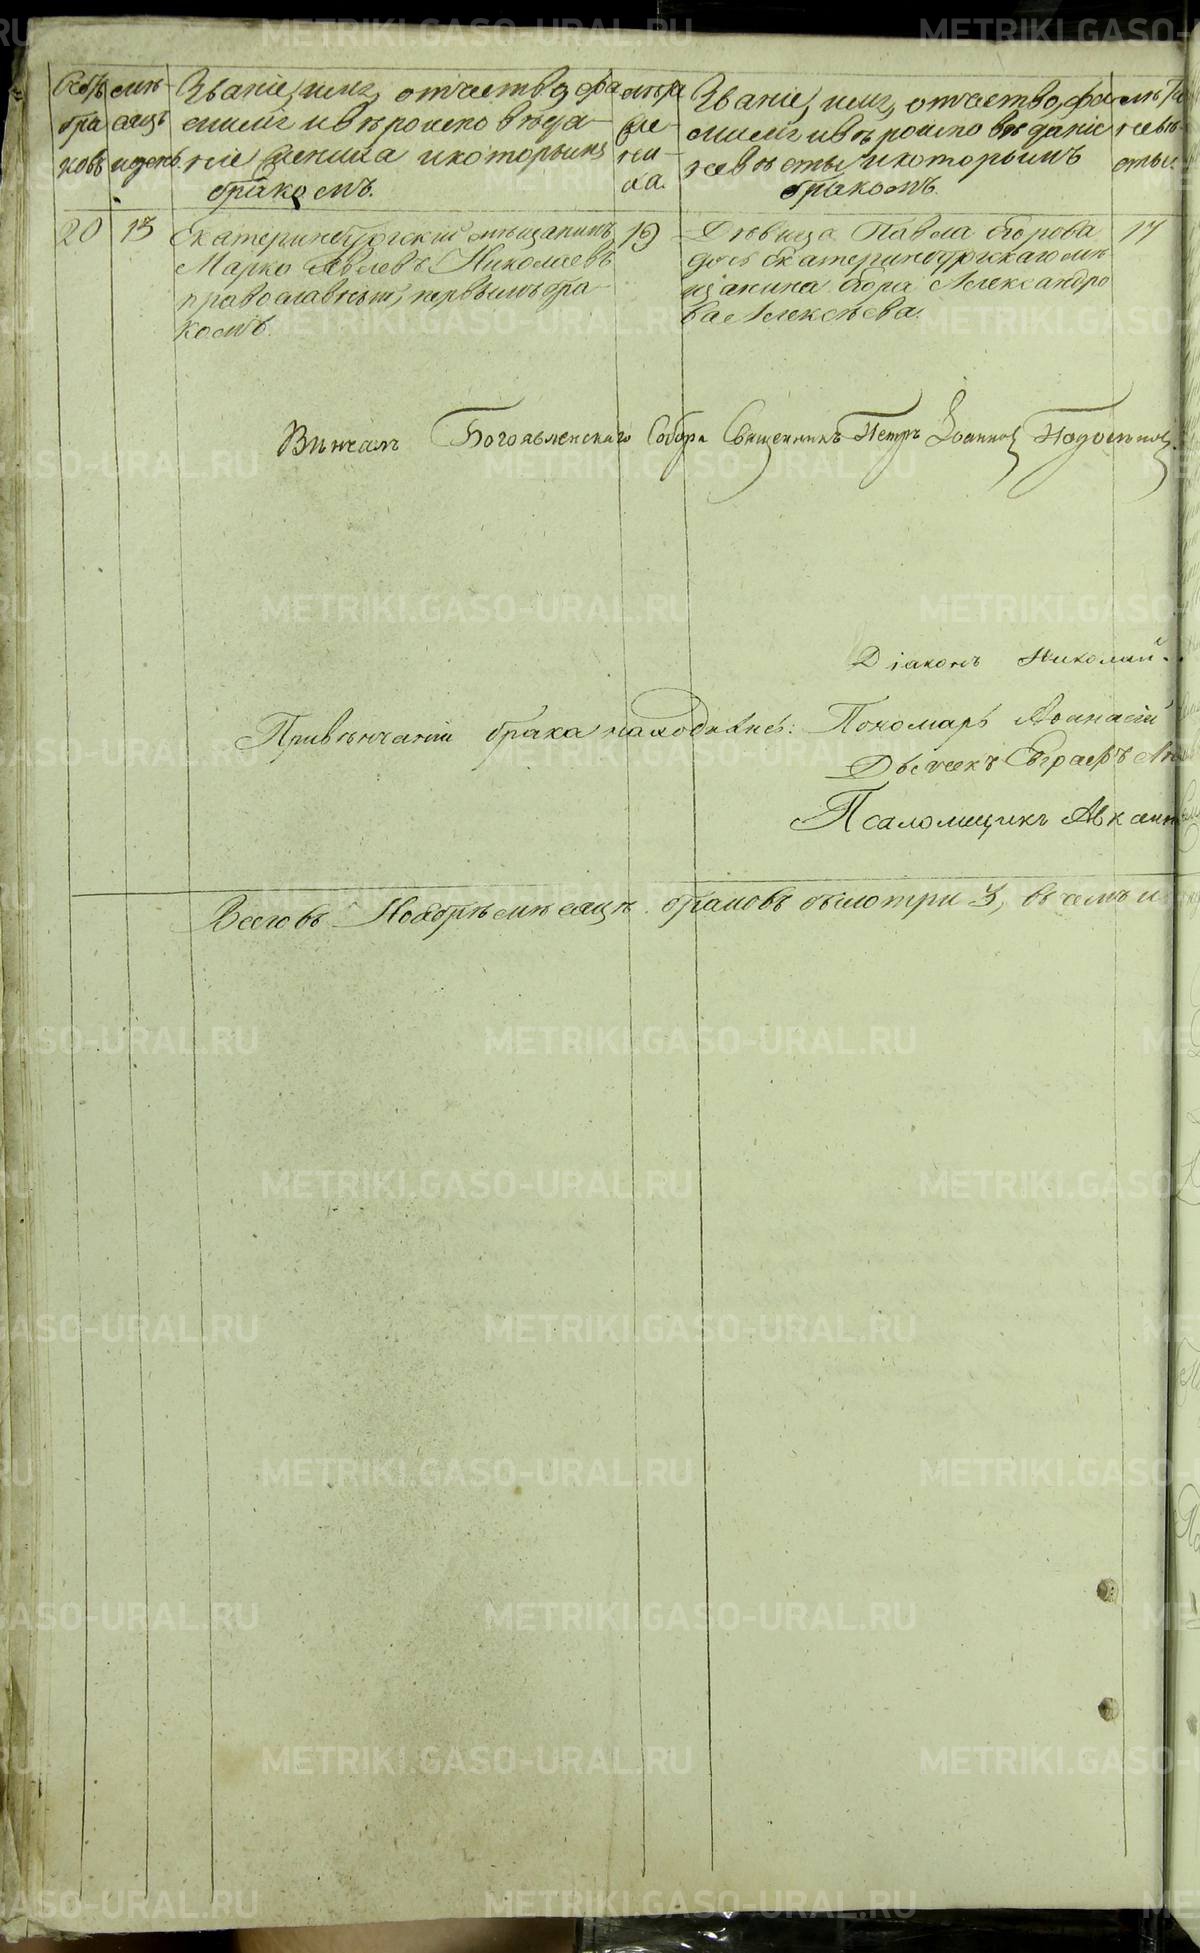 Званіе, имя, отчество, фа
милія и вѣроисповѣда
ніе жениха и которымъ
бракомъ.
лѣта
же
ни
ха.
Званіе, имя, отчество, фа
милія и вѣроисповѣданіе
невѣсты и которымъ
бракомъ.
20
13
Екатеринбургскій мѣщанинъ
Марко Яковлевъ Николаевъ
православный, первымъ бра
комъ.
19
Дѣвица Павла Егорова
дочь Екатеринбургскаго мѣ
щанина Егора Александро
ва Алексѣева.
17
Вѣнчалъ Богоявленскаго Собора Священникъ Петръ Іоанновъ
Діаконъ Николай
При вѣнчаніи брака находились: Пономарь Афанасій
Дьячекъ Евграфъ
Псаломщикъ
Всего въ Ноябрѣ мѣсяцѣ браковъ было три 3, въ чемъ и
METRIKI.GASO-URAL.RU